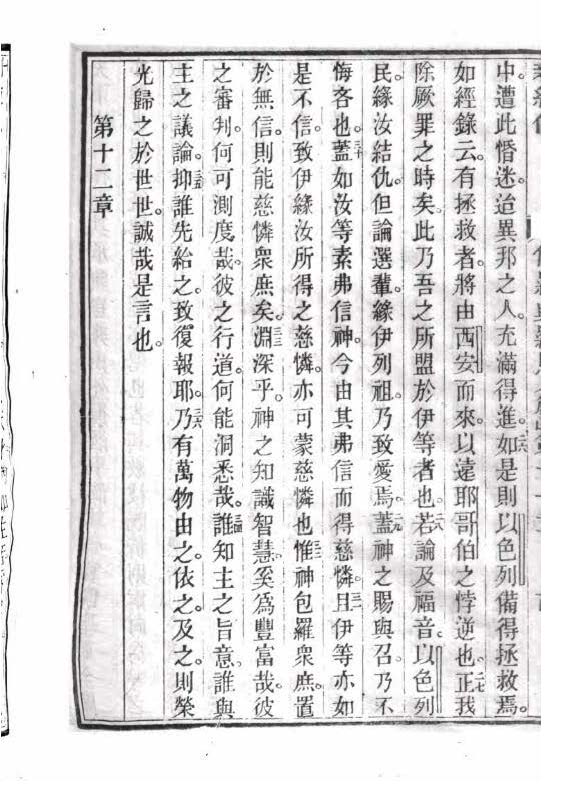 中。遭此惛迷。迨異邦之人。充滿得進。二六如是則以色列備得拯救焉。
如經錄云。有拯救者。將由西安而來。以遠耶哥伯之悖逆也。二七正我
除厥罪之時矣。此乃吾之所盟於伊等者也。二八若論及福音。以色列
民緣汝結仇。但論選輩。緣伊列祖。乃致愛焉。二九蓋神之賜與召。乃不
悔吝也。三十蓋如汝等素弗信神。今由其弗信而得慈憐。三一且伊等亦如
是不信。致伊緣汝所得之慈憐。亦可蒙慈憐也。三二惟神包羅衆庶。置
於無信。則能慈憐衆庶矣。三三淵深乎。神之知識智慧。奚爲豐富哉。彼
之審判。何可測度哉。彼之行道。何能洞悉哉。三四誰知主之旨意。誰與
主之議論。三五抑誰先給之。致復報耶。三六乃有萬物由之。依之。及之。則榮
光歸之於世世。誠哉是言也。
第十二章